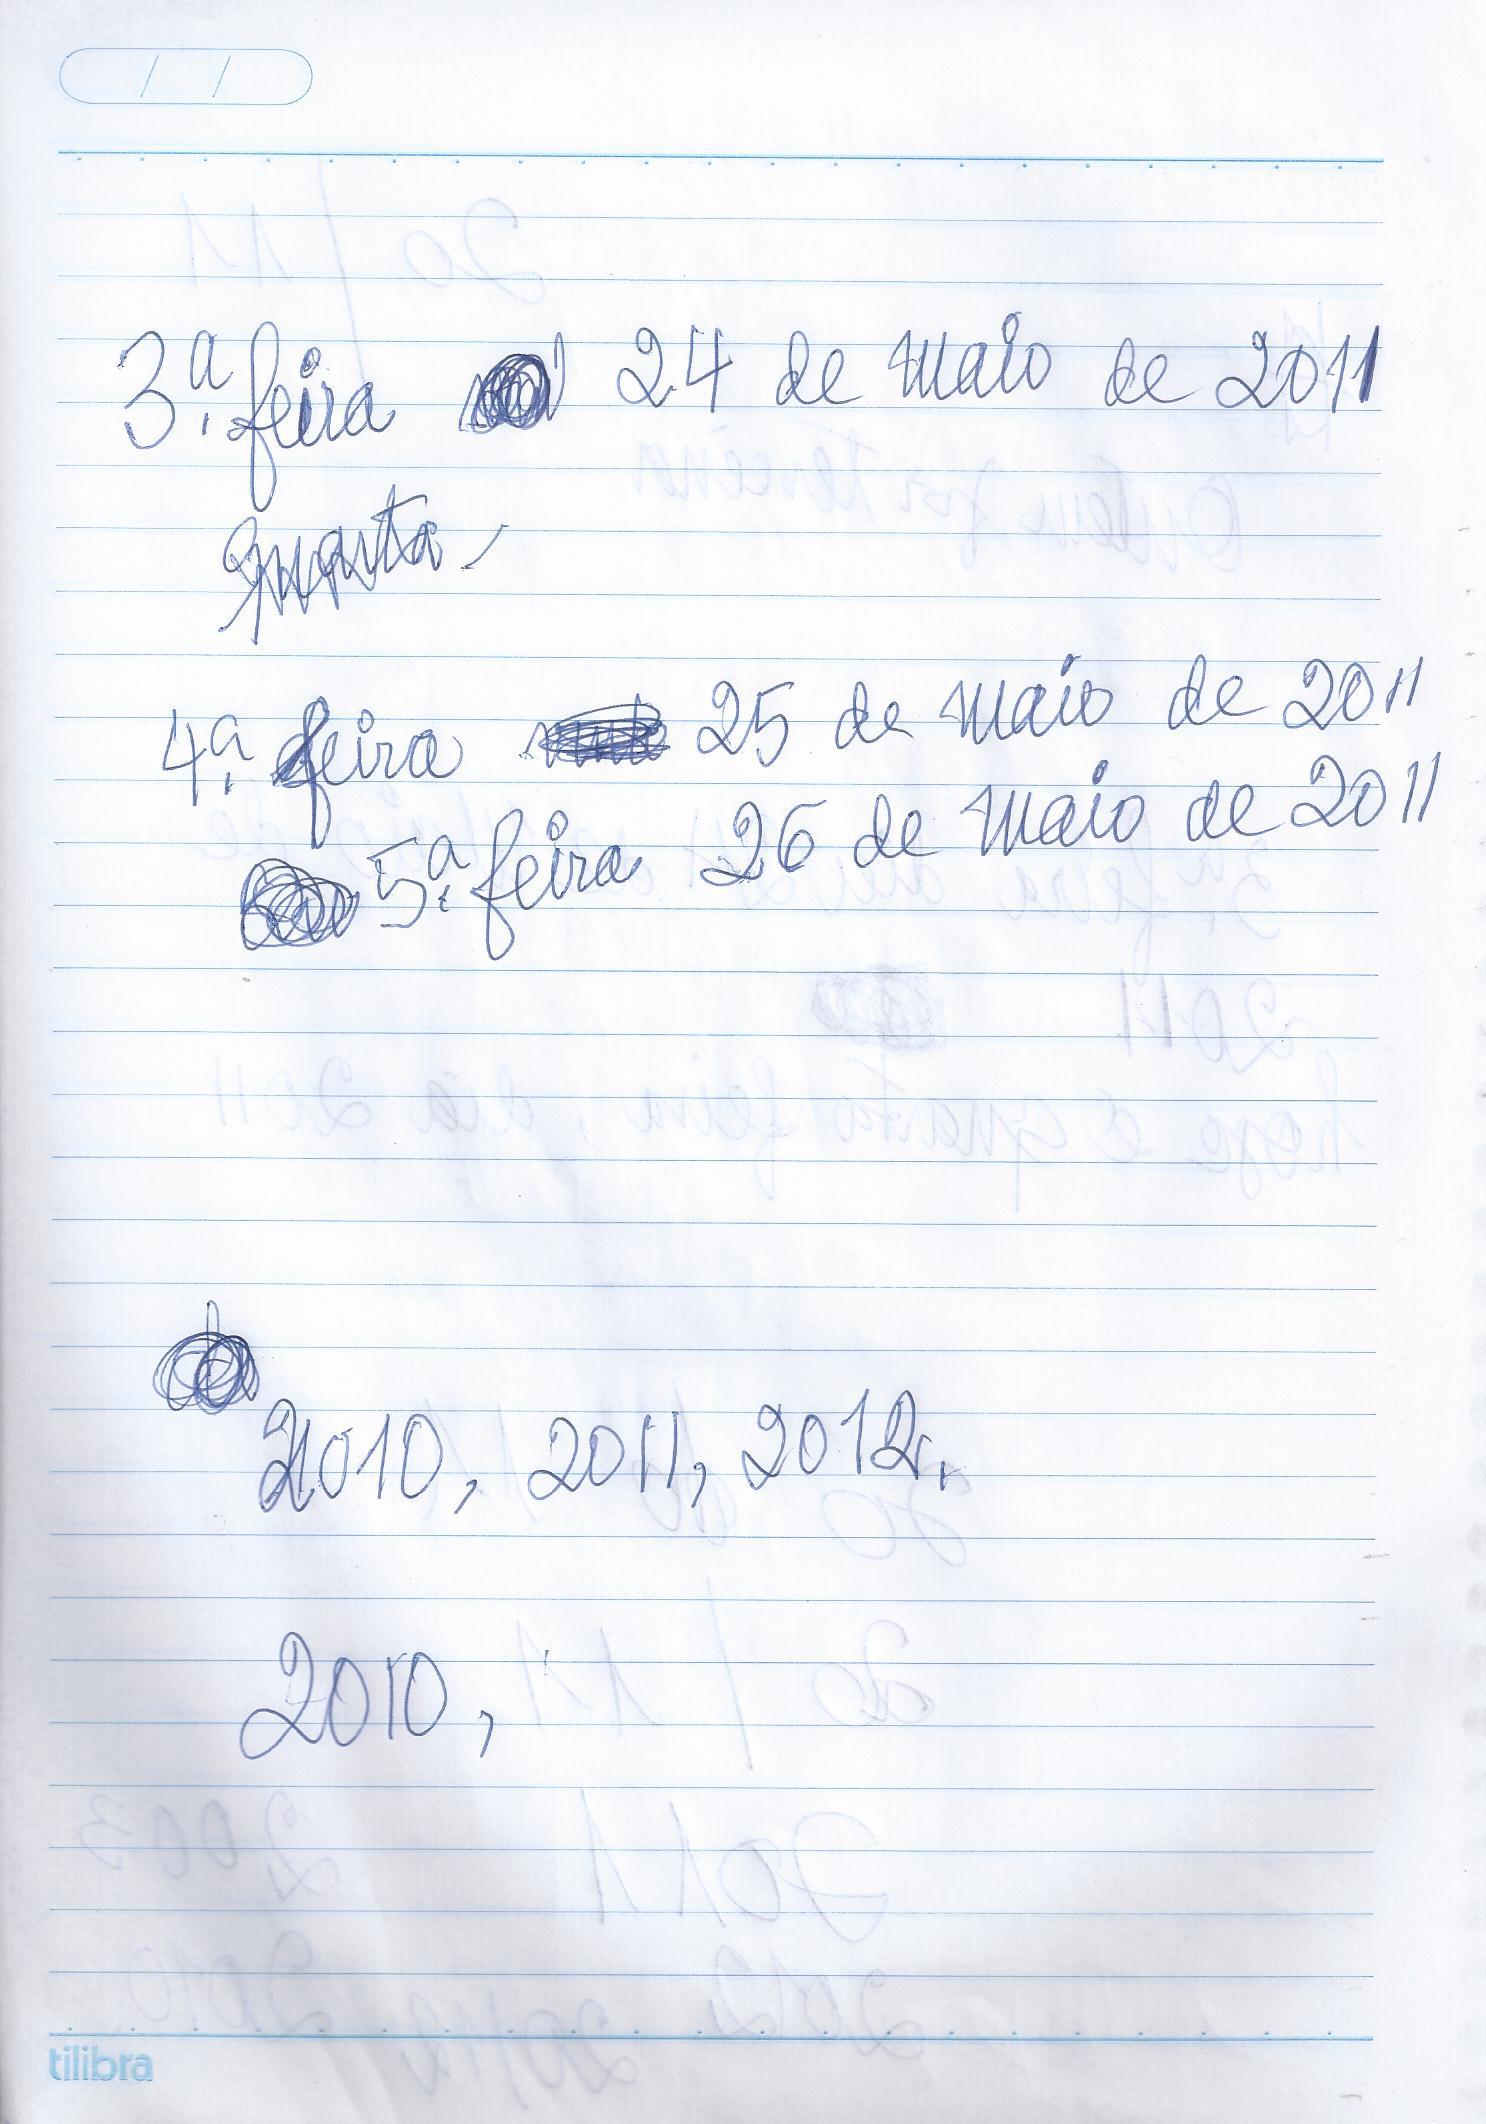 3.ª feira 24 de maio de 2011
quarta -
4.ª feira 25 de maio de 2011
5.ª feira 26 de maio de 2011
2010, 2011, 2012.
2010,
tilibra